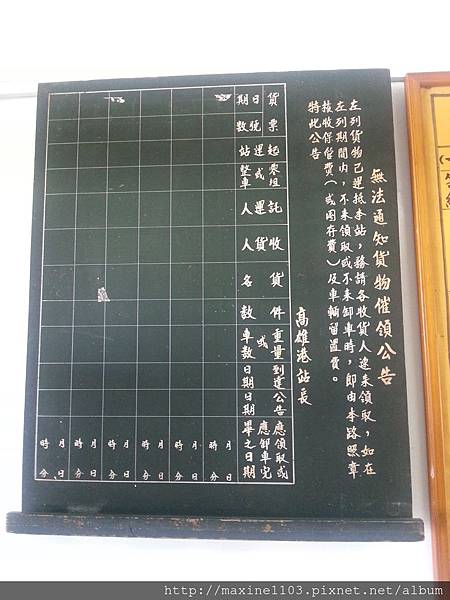 無法通知貨物催領公告
左列貨物已運抵本站，務請各收貨人速來領取，如在
左列期間內，不來領取或不來卸車時，即由本路照章
核收保管費（或囤存費）及車輛留置費。
特此公告
高雄港站長
貨日期
票號數
起運站
零担或整車
託運人
收貨人
貨名
件數或重量車數
到達日期
公告日期
應領取或應卸車完畢之日期
月日時分
月日時分
月日時分
月日時分
月日時分
月日時分
http://maxine1103.pixnet.net/album